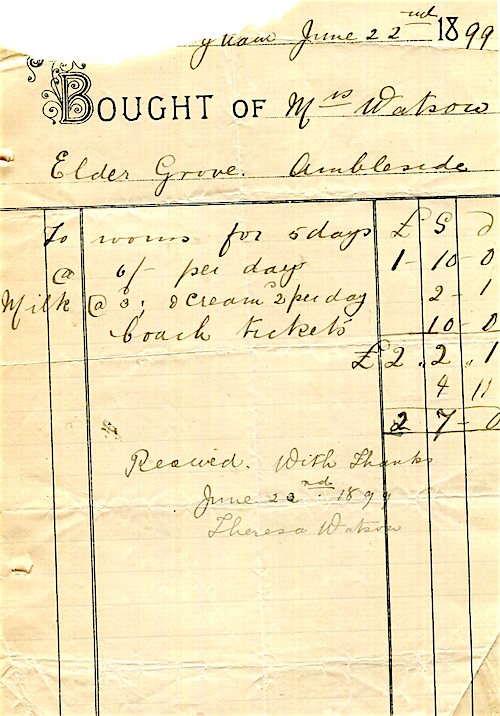 June 22nd 1899
BOUGHT OF Mrs Watson
Elder Grove. Ambleside
To rooms for 5 days £ S D
@ 6/- per day 1-10-0
Milk @ 3; & cream 2 per day 2-1
Coach tickets 10-0
£2"2"1
4 11
2 7-0
Received. With Thanks
June 22nd 1899
Theresa Watson